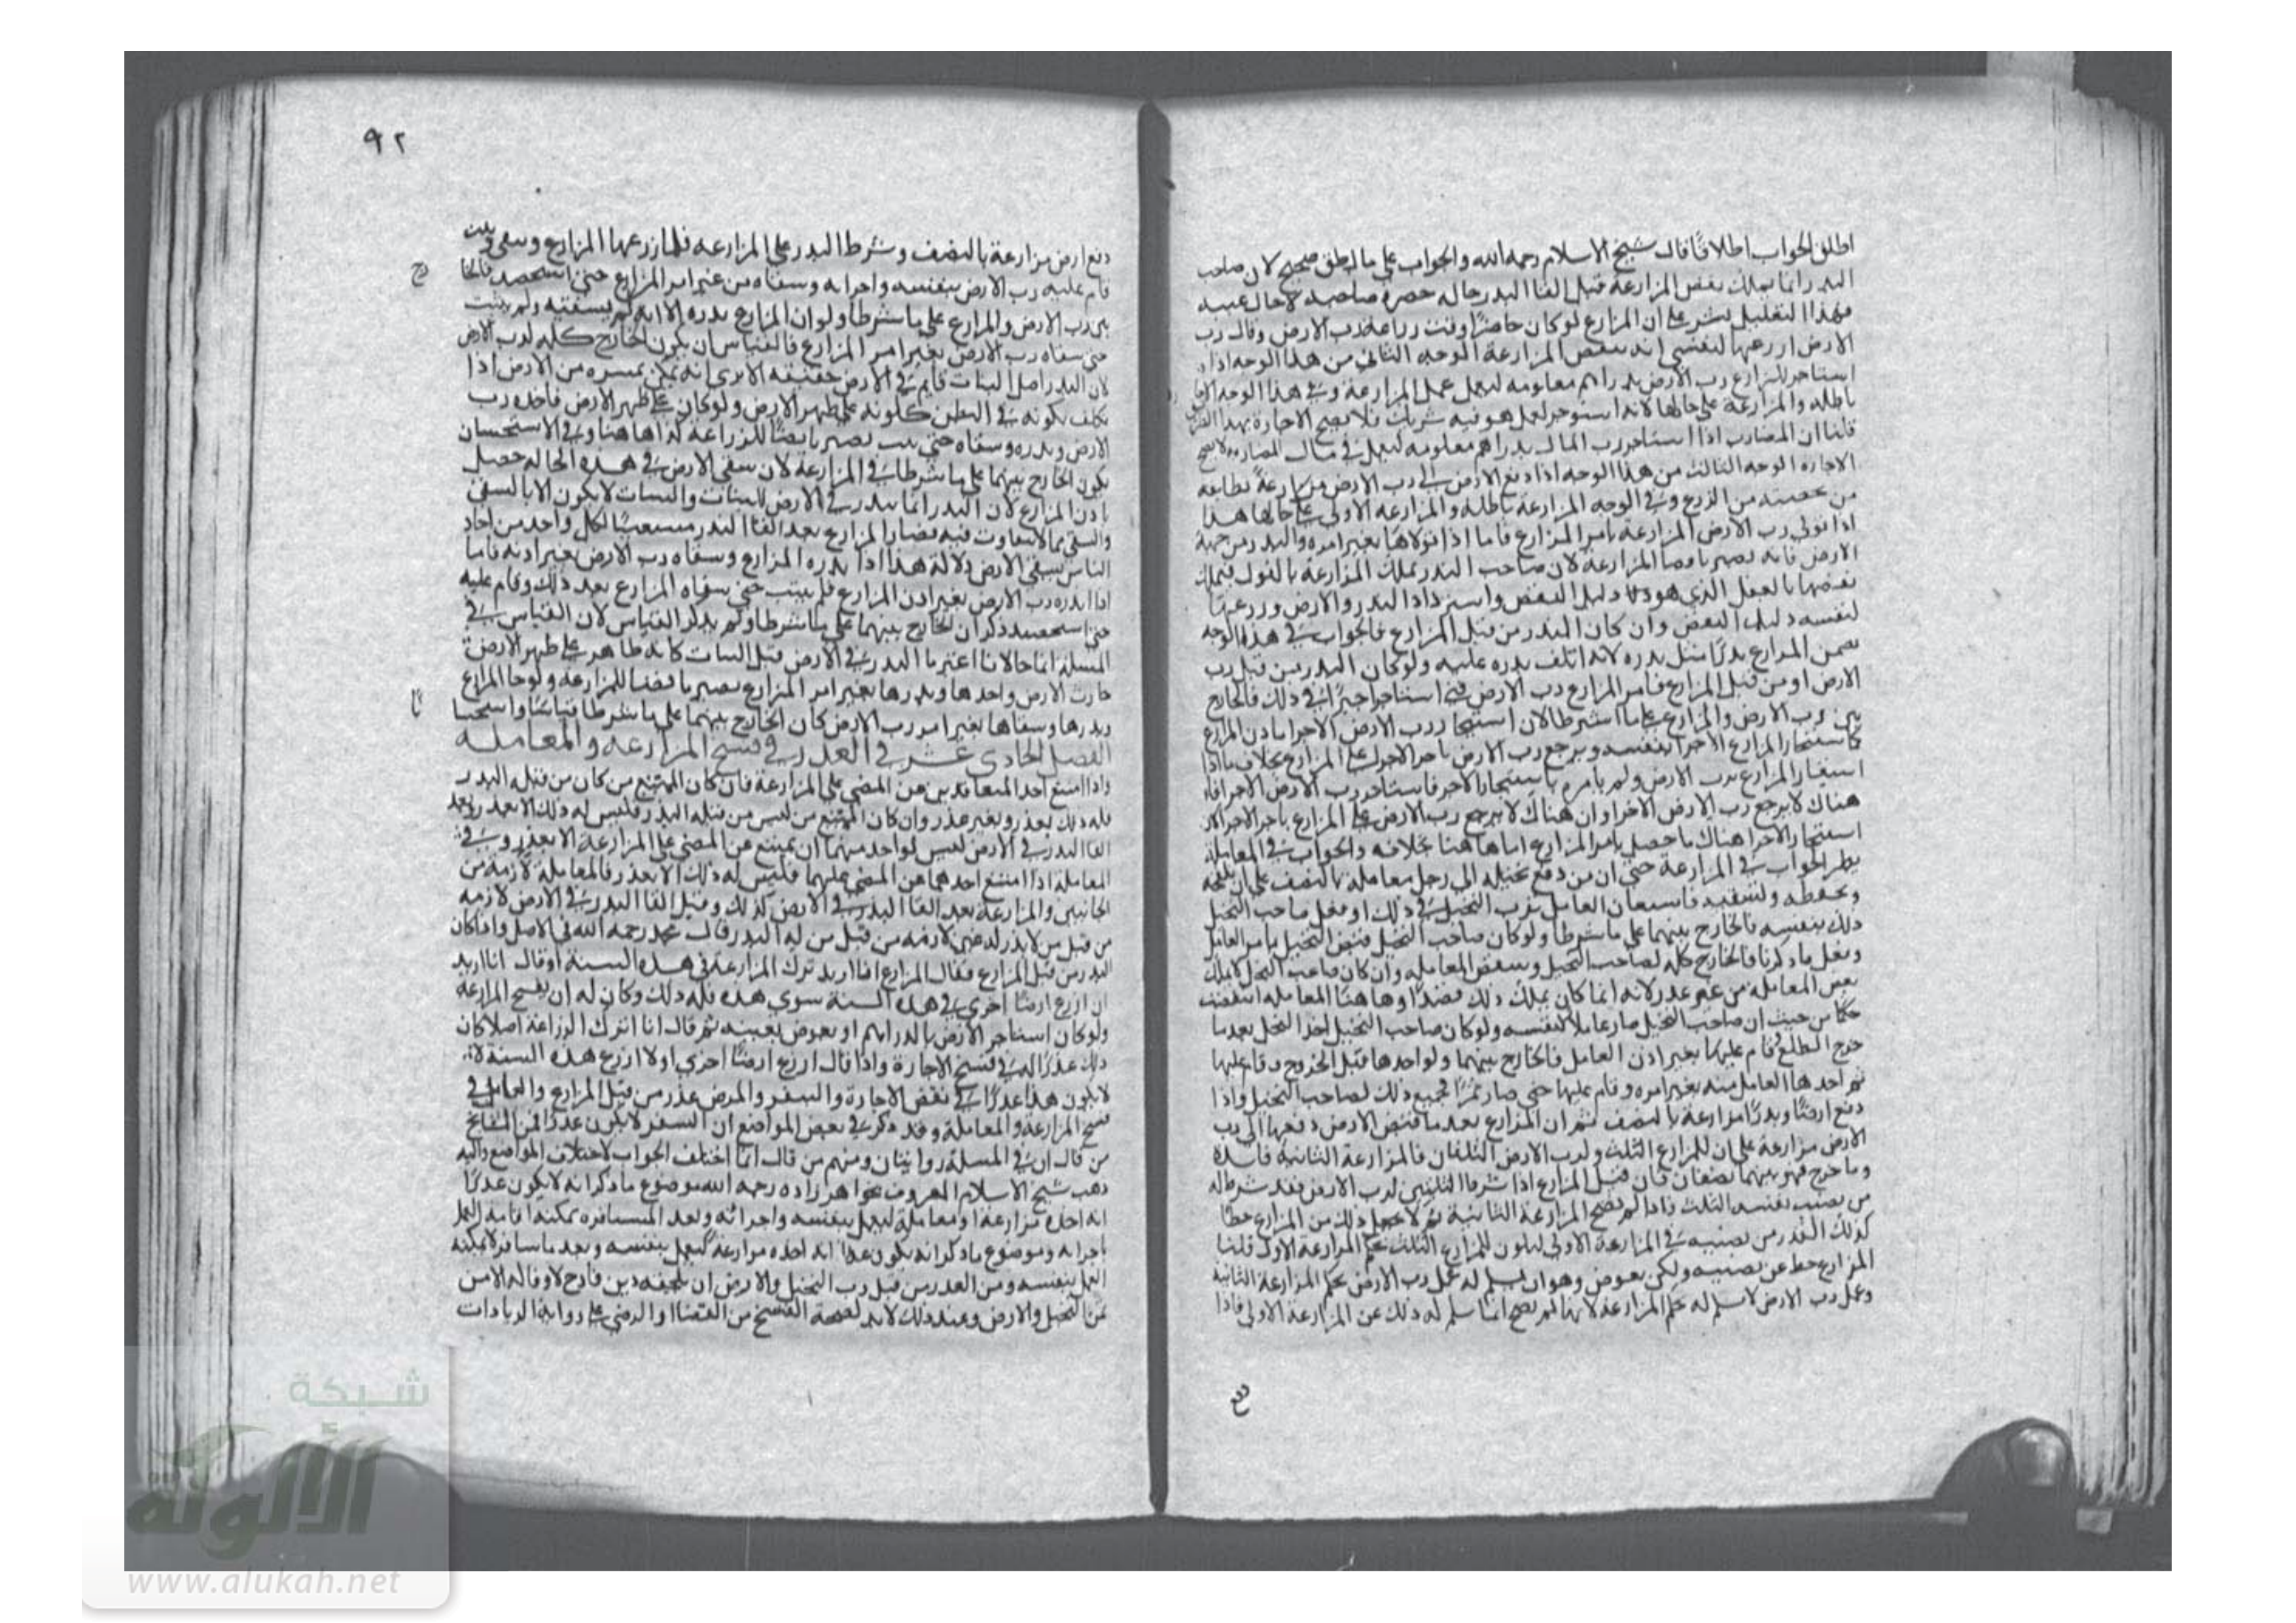 اطلق الجواب اطلاقا قال شيخ الاسلام رحمه الله والجواب على ما اطلق صحيح لان صاحب
البذر انما يملك نقض المزارعة قبل القا البذر حاله حضرة صاحبه لا حال غيبته
فهذا التعليل يشير على ان المزارع لو كان حاضرا وقت زراعة رب الارض وقال رب
الارض ازرعها لنفسي انه ينقض المزارعة الوجه الثاني من هذا الوجه اذا
استاجر المزارع رب الارض بدراهم معلومه ليعمل عمل المزارعة وفي هذا الوجه الاجارة
باطله والمزارعة على حالها لانه استوجر لعمل هو فيه شريك فلا يصح الاجارة بهذا
قلنا ان المضارب اذا استاجر رب المال بدراهم معلومه ليعمل في مال المضاربه لا يصح
الاجاره الوجه الثالث من هذا الوجه اذا دفع الارض الى رب الارض مزارعة بطايفه
من حصته من الزرع وفي الوجه المزارعة باطله والمزارعه الاولى على حالها هذا
اذا تولى رب الارض المزارعة بامر المزارع فاما اذا تولاها بغير امره والبذر من جهة
الارض فانه يصير ناقضا المزارعة لان صاحب البذر يملك المزارعة بالقول فيملك
نقضها بالفعل الذي هو دليل النقض واسترداد البذر والارض وزرعها
لنفسه دليل النقض وان كان البذر من قبل المزارع فالجواب في هذا الوجه
يضمن المزارع بذرا مثل بذره لانه اتلف بذره عليه ولو كان البذر من قبل رب
الارض او من قبل المزارع فامر المزارع رب الارض استاجر اجيرا في ذلك فالخارج
بين رب الارض والمزارع على ما اشترطا لان استيجار رب الارض الاجرا باذن المزارع
كاستيجار المزارع الاجرا بنفسه ويرجع رب الارض باجر الاجرا على المزارع بخلاف ما اذا
استعان المزارع برب الارض ولم يامره باستيجار الاجر فاستاجر رب الارض الاجرا فان
هناك لا يرجع رب الارض الاجرا وان هناك لا يرجع رب الارض على المزارع باجر الاجرا لان
استيجار الاجرا هناك ما حصل بامر المزارع اما هاهنا بخلافه والجواب في المعاملة
نظير الجواب في المزارعة حتى ان من دفع نخيله الى رجل معاملة بالنصف على ان يلقحه
ويحفظه وليسقيه فاستعان العامل برب النخيل في ذلك او فعل صاحب النخيل
ذلك بنفسه فالخارج بينهما على ما شرطا ولو كان صاحب النخيل قبض النخيل بامر العامل
وفعل ما ذكرنا فالخارج كله لصاحب النخيل وينقض المعاملة وان كان صاحب النخيل لا يملك
نقض المعامله من غير عذر لانه انما كان يملك ذلك قصدا وهاهنا المعاملة انتقضت
حكما من حيث ان صاحب النخيل صار عاملا لنفسه ولو كان صاحب النخيل اخذ النخل بعدما
خرج الطلع قام عليها بغير اذن العامل فالخارج بينهما ولو اخذها قبل الخروج وقام عليها
ثم اخذها العامل منه بغير امره وقام عليها حتى صار تمرا فجميع ذلك لصاحب النخيل واذا
دفع ارضا وبذرا مزارعة بالنصف ثم ان المزارع بعد ما قبض الارض دفعها الى رب
الارض مزارعة على ان للمزارع الثلث ولرب الارض الثلثان فالمزارعة الثانية فاسدة
وما خرج فهو بينهما نصفان فان قيل المزارع اذا شرط الثلثين لرب الارض فقد شرط له
من نصيب نفسه الثلث فاذا لم تصح المزارعة الثانية لم لا يجعل ذلك من المزارع حطا
كذلك القدر من نصيبه في المزارعة الاولى ليكون للمزارع الثلث بحكم المزارعة الاولى قلنا
المزارع حط عن نصيبه ولكن بعوض وهو ان يسلم له عمل رب الارض بحكم المزارعة الثانية
وعمل رب الارض لا يسلم له بحكم المزارعة لانها لم تصح انما سلم له ذلك عن المزارعة الاولى فاذا
٩٢
دفع ارض مزارعة بالنصف وشرط البذر على المزارعه فلما زرعها المزارع وسقى ونبت
قام عليه رب الارض بنفسه واجرايه وسقاه من غير امر المزارع حتى استحصد فالخارج
بين رب الارض والمزارع على ما شرطا ولو ان المزارع بذره الا انه لم يسقيه ولم ينبت
حتى سقاه رب الارض بغير امر المزارع فالقياس ان يكون الخارج كله لرب الارض
لان البذر اصل النبات قايم في الارض حقيقه الا يرى انه يمكن تميزه من الارض اذا
تكلف بكونه في البطن ككونه على ظهر الارض ولو كان على ظهر الارض فاخذه رب
الارض وبذره وسقاه حتى نبت يصير ناقضا للمزارعة كذا هاهنا وفي الاستحسان
يكون الخارج بينهما على ما شرطا في المزارعة لان سقي الارض في هذه الحاله حصل
باذن المزارع لان البذر انما يبذر في الارض للنبات والنبات لا يكون الا بالسقي
والسقي مما لا يتفاوت فيه فصار المزارع بعد القا البذر مستعينا بكل واحد من احاد
الناس بسقي الارض دلالة هذا اذا بذره المزارع وسقاه رب الارض بغير اذنه فاما
اذا بذره رب الارض بغير اذن المزارع فلم ينبت حتى سقاه المزارع بعد ذلك وقام عليه
حتى استحصد ذكر ان الخارج بينهما على ما شرطا ولم يذكر القياس لان القياس في
المسلة انما حالانا اعتبرنا البذر في الارض قبل النبات كانه ظاهر على ظهر الارض
حارث الارض واخذها وبذرها بغير امر المزارع يصير ناقضا للمزارعة ولو جا المزارع
وبذرها وسقاها بغير امر رب الارض كان الخارج بينهما على ما شرطا قياسا واستحسا
نا
الفصل الحادي عشر في العذر في فسخ المزارعه والمعامله
واذا امتنع احد المتعاقدين عن المضي على المزارعة فان كان الممتنع من كان من قبله البذر
فله ذلك بعذر وبغير عذر وان كان الممتنع من ليس من قبله البذر فليس له ذلك الا بعذر وبعد
القا البذر في الارض ليس لواحد منهما ان يمتنع عن المضي على المزارعة الا بعذر وفي
المعاملة اذا امتنع احدهما عن المضي عليها فليس له ذلك الا بعذر فالمعاملة لازمة من
الجانبين والمزارعة بعد القا البذر في الارض كذلك وقبل القا البذر في الارض لازمه
من قبل من لا بذر له غير لازمه من قبل من له البذر قال محمد رحمه الله في الاصل واذا كان
البذر من قبل المزارع فقال المزارع انا اريد ترك المزارعة في هذه السنة او قال انا اريد
ان ازرع ارضا اخرى في هذه السنة سوى هذه فله ذلك وكان له ان يفسخ المزارعة
ولو كان استاجر الارض بالدراهم او بعوض بعينه ثم قال انا اترك الزراعة اصلا كان
ذلك عذرا له في فسخ الاجارة واذا قال ازرع ارضا اخرى اولا ازرع هذه السنة لا
لا يكون هذا عذرا في نقض الاجارة والسفر والمرض عذر من قبل المزارع والعامل في
فسخ المزارعة والمعاملة وقد ذكر في بعض المواضع ان السفر لا يكون عذرا فمن المشايخ
من قال ان في المسلة روايتان ومنهم من قال انما اختلف الجواب لاختلاف المواضع واليه
ذهب شيخ الاسلام المعروف بخواهر زاده رحمه الله موضوع ما ذكر انه لا يكون عذرا
انه اخذه مزارعة او معاملة ليعمل بنفسه واجرائه وبعد المسافره يمكنه اقامة العمل
باجرايه وموضوع ما ذكر انه يكون عذرا انه اخذه مزارعة ليعمل بنفسه وبعد ما سافر لا يمكنه
العمل بنفسه ومن العذر من قبل رب النخيل والارض ان يلحقه دين فادح لا وفا له الا من
ثمن النخيل والارض وعند ذلك لا بد لصحة الفسخ من القضا او الرضى على رواية الزيادات
شبكة
الألوكة
www.alukah.net